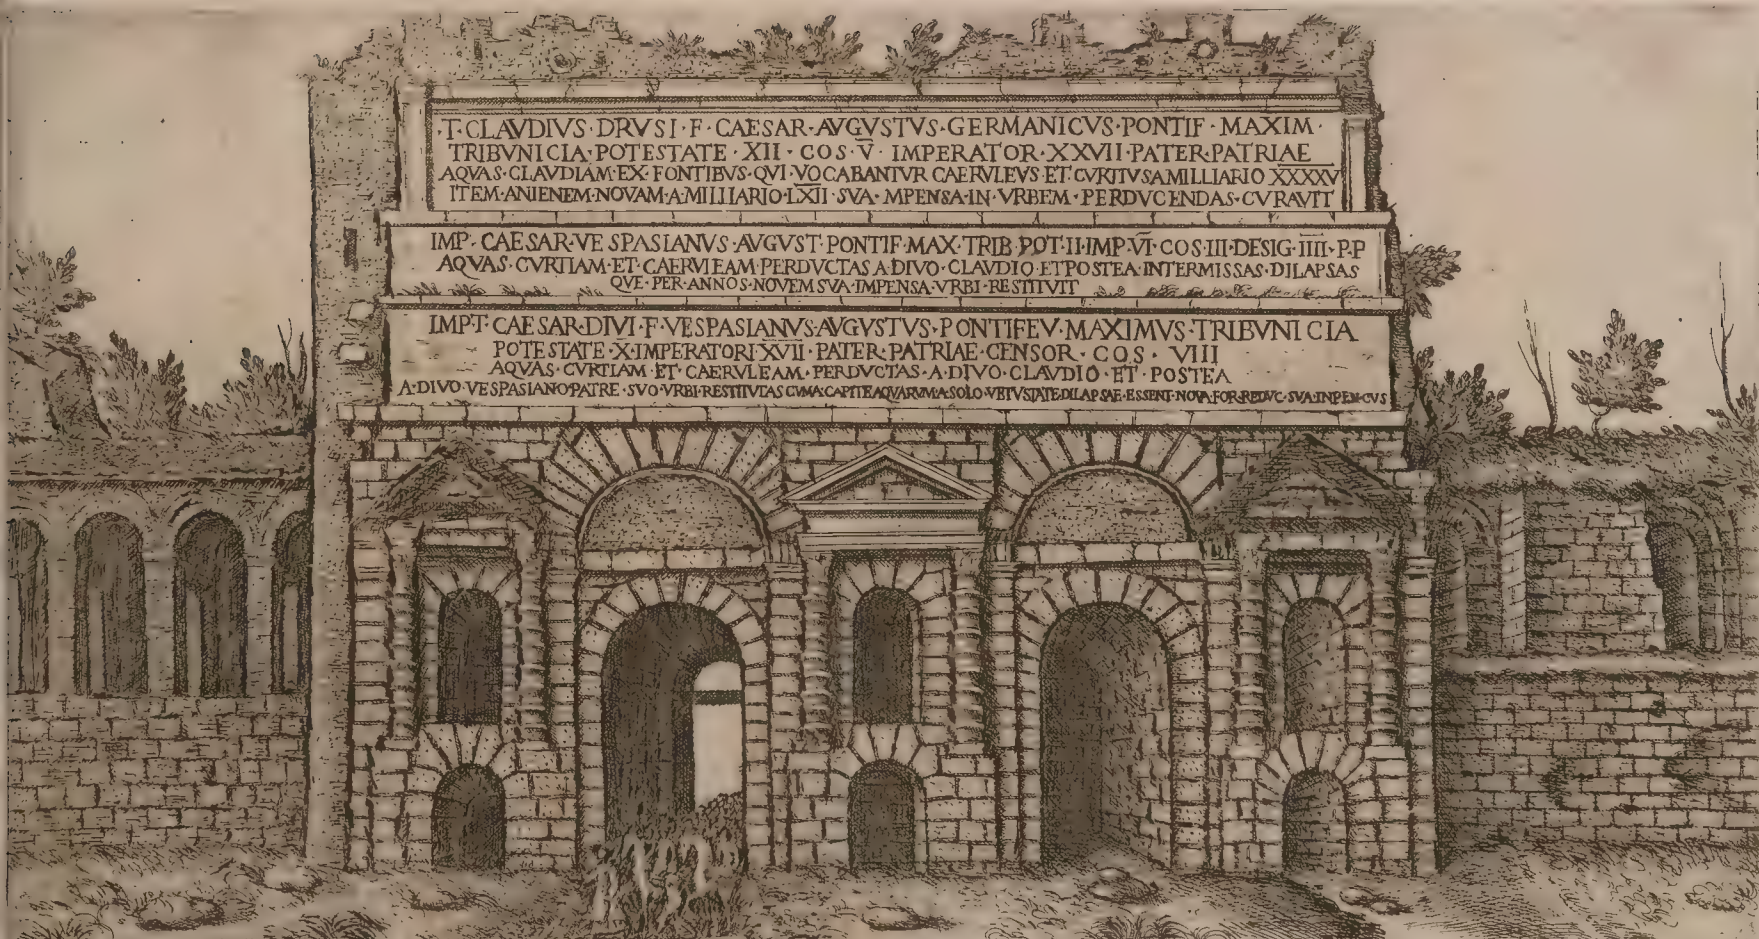 ·T·CLAVDIVS·DRVSI·F·CAESAR·AVGVSTVS·GERMANICVS·PONTIF·MAXIM·
TRIBVNICIA·POTESTATE·XII·COS·V̅·IMPERATOR·XXVII·PATER·PATRIAE
AQVAS·CLAVDIAM·EX·FONTIBVS·QVI·VOCABANTVR CAERVLEVS·ET·CVRTIVSAMILLIARIO X̅X̅X̅X̅V̅
ITEM·ANIENEM·NOVAM·A·MILLIARIO·LX̅I̅I̅·SVA·MPENSA·IN·VRBEM·PERDVCENDAS·CVRAVIT
IMP·CAESAR·VESPASIANVS·AVGVST·PONTIF·MAX·TRIB·POT·II·IMP·V̅I̅·COS·III·DESIG·I̅I̅I̅I̅·P·P
AQVAS·CVRTIAM·ET·CAERVIEAM·PERDVCTAS A·DIVO·CLAVDIO·ETPOSTEA·INTERMISSAS·DILAPSAS
QVE·PER·ANNOS·NOVEM SVA·IMPENSA·VRBI·RESTITVIT
IMP·T·CAESAR·DIVI·F·VESPASIANVS·AVGVSTVS·PONTIFEV·MAXIMVS·TRIBVNICIA
POTESTATE·X̅·IMPERATORI·X̅V̅I̅I̅·PATER·PATRIAE·CENSOR·COS·VIII
AQVAS·CVRTIAM·ET·CAERVLEAM·PERDVCTAS·A·DIVO·CLAVDIO·ET·POSTEA
A·DIVO·VESPASIANO·PATRE·SVO·VRBI·RESTITVTAS CVMA·CAPITE AQVARVM·A·SOLO·VETVSTATE·DILAPSAE·ESSENT·NOVA·FOR·REDVC·SVA·INPEN·CVS